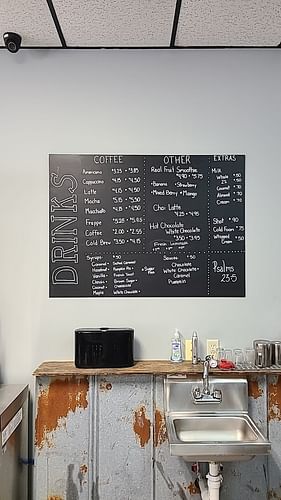 DRINKS
COFFEE
Americano $3.25 - $3.85
Cappuccino $4.15 - $4.50
Latte $4.15 - $4.50
Mocha
Macchiato
Frappe
Coffee $2.00 - $2.55
Cold Brew $3.50 - $4.15
OTHER
Real Fruit Smoothies
$4.90 - $5.75
•Banana •Strawberry
•Mixed Berry •Mango
Chai Latte
4.25 - 4.95
Hot Chocolate
White Chocolate
$3.50 - $3.95
Fresh Lemonade
EXTRAS
Milk
Whole
2%
Coconut
Almond
Cream
Shot
Cold Foam
Whipped
Cream
Syrups
Caramel
Hazelnut
Vanilla
Classic
Coconut
Maple
Salted Caramel
Pumpkin Pie
French Toast
Brown Sugar
Cheesecake
White Chocolate
Sugar
Free
Sauces
Chocolate
White Chocolate
Caramel
Pumpkin
Psalms
23:5